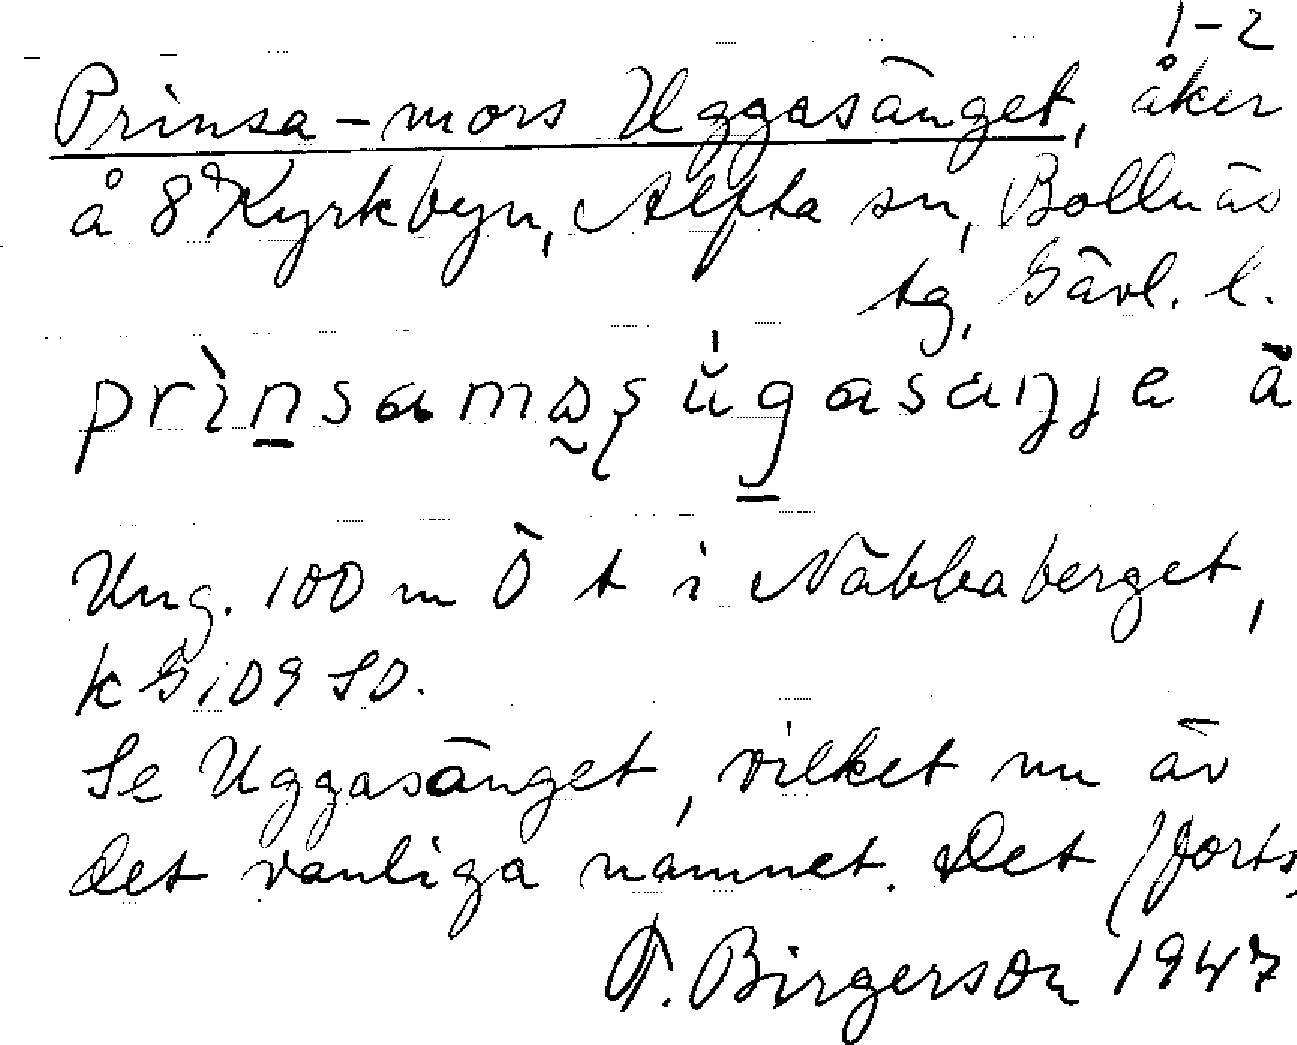 1-2
Prinsa-mors Uggasänget, åker
å 8 Kyrkbyn, Alfta sn, Bollnäs
tg, Gävl. l.
Ung. 100 m Ö t i Näbbaberget,
k G i D9 SO.
Se Uggasänget, vilket nu är
det vanliga namnet. Det (forts.
T. Birgerson 1947